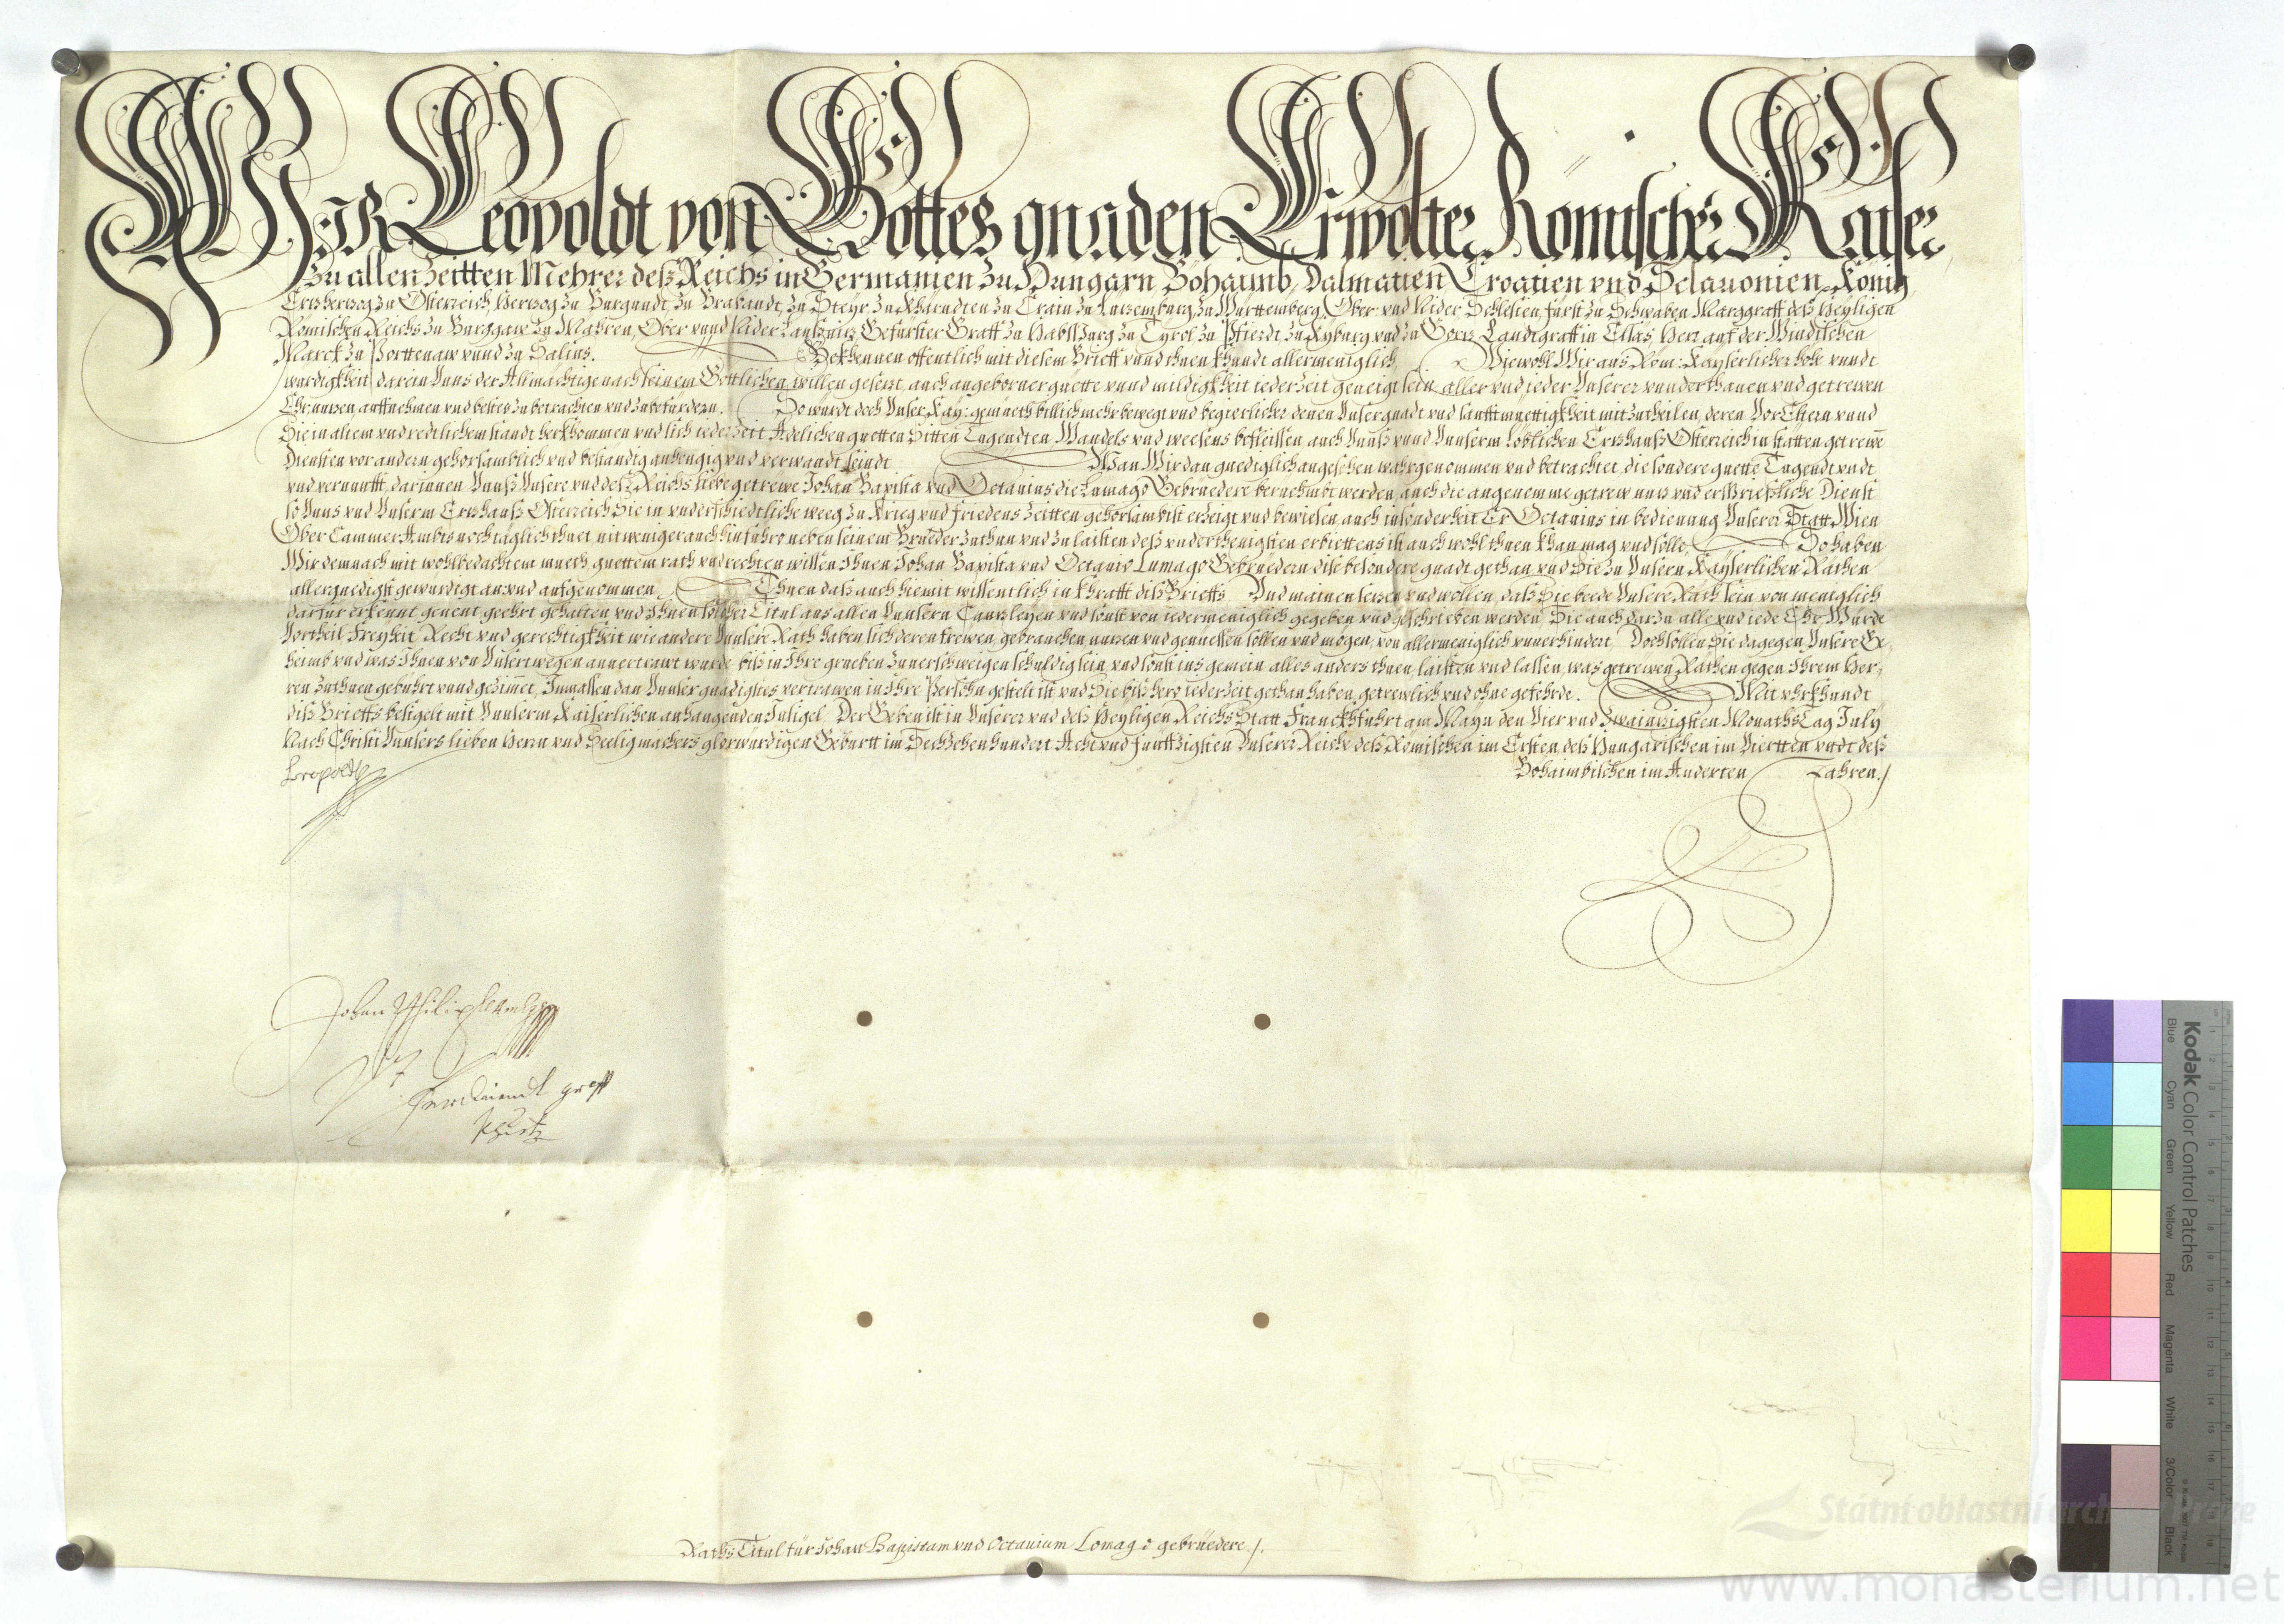 WIR Leopoldt von Gottes gnaden Erwolter Römischer Kaiser,
Zu allen Zeitten Mehrer deß Reichs in Germanien zu Hungarn Böhaimb, Dalmatien Croatien vnd Sclauonien König,
Ertzhertzog zu Osterreich, Hertzog zu Burgundt, zu Brabandt, zu Steyr, zu Khärndten zu Crain zu Lutzemburg, zu Württemberg, Ober: vnd Nider Schlesien, fürst zu Schwaben Marggraff deß Heyligen
Römischen Reichs zu Burggaw zu Mähren, Ober vnnd Nider Laußnitz Gefürster Graff zu Habspurg zu Tyrol zu Pfierdt, zu Kyburg vnd zu Görtz, Landtgraff in Elsäs, Herr auf der Windischen
Marck zu Porttenaw vnnd zu Salins. Bekhennen offentlich mit diesem Brieff vnnd thuen khundt allermeniglich, Wiewohl Wir aus Röm: Kayserlicher höhe vnndt
würdigkheit darein Vnns der Allmächtige nach seinem Göttlichen willen gesetzt, auch angeborner guette vnnd mildigkheit iederzeit geneigt sein, aller vnd ieder Vnserer vnnderthanen vnd getrewen
Ehr, nutzen auffnehmen vnd bestes zu betrachten vnd zubefürdern. So würdt doch Vnser Kay: gemüeth billich mehr bewegt vnd begierlicher denen Vnser gnadt vnd sanfftmüettigkheit mitzutheilen, deren VorEltern vnnd
Sie in altem vnd redtlichem standt herkhommen vnd sich iederzeit Adelichen guetten Sitten Tugendten, Wandels vnd weesens befleissen, auch Vnnß vnnd Vnnserm Löblichen Ertzhauß Österreich in stätten getrewē
Diensten vor andern gehorsamblich vnd bestandig anhengig vnd verwandt seindt. Wan Wir dan gnediglich angesehen, wahrgenommen vnd betrachtet, die sondere guette Tugendt vndt
vnd vernunfft, darinnen Vnnß Vnsere vnd deß Reichs liebe getrewe Johan Baptista vnd Octauius die Lumago Gebrüedere beruehmbt werden, auch die angenemme getrew nutz vnd ersprießliche Dienst
so Vnns vnd Vnserm Ertzhauß Österreich Sie in vnderschiedtliche weeg zu Krieg vnd friedens Zeitten gehorsambist erzeigt vnd bewiesen, auch insonderheit Er Octauius in bedienung Vnserer Statt Wien
Ober Cammer Ambts noch täglich thuet, nit weniger auch hinfüro neben seinem Brueder zuthun vnd zu laisten deß vnderthenigisten erbiettens ist, auch wohl thuen khan, mag vnd solle, So haben
Wir demnach mit wohlbedachtem mueth, guettem rath vnd rechten wissen Ihnen Johan Baptista vnd Octauio Lumago Gebrüedern dise besondere gnadt gethan vnd Sie zu Vnsern Kayserlichen Räthen
allergnedigist gewürdigt an vnd aufgenommen, Thuen daß auch hiemit wissentlich in khrafft diß Brieffs. Vnd mainen setzen vnd wollen, daß Sie beede Vnsere Räth sein von meniglich
darfür erkennt genent geehrt gehalten vnd Ihnen solcher Titul aus allen Vnnsern Cantzleyen vnd sonst von iedermeniglich gegeben vnd geschrieben werden, Sie auch darzu alle vnd iede Ehr, Würde
Vortheil Freyheit Recht vnd gerechtigkheit wie andere Vnnsere Räth haben sich deren frewen, gebrauchen nutzen vnd genüessen sollen vnd mögen, von allermeniglich vnuerhindert. Doch sollen Sie dagegen Vnsere Ge-
heimb vnd was Ihnen von Vnsertwegen anuertrawt wurde biß in Ihre grueben zuuerschweigen schuldig sein, vnd sonst ins gemein alles anders thuen laisten vnd lassen, was getrewen Räthen gegen Ihrem Her-
ren zuthuen gebührt vnnd gezimmet, Inmassen dan Vnnser gnädigstes vertrawen in Ihre Persohn gestelt ist vnd Sie bißhero iederzeit gethan haben, getrewlich vnd ohne gefehrde. Mit vhrkhundt
diß Brieffs besigelt mit Vnnserm Kaiserlichen anhangenden Insigel. Der Geben ist in Vnserer vnd deß Heyligen Reichs Statt Franckhfuhrt am Mayn den Vier vnd Zwaintzigisten Monaths Tag July
Nach Christi Vnnsers lieben Herrn vnd Seeligmachers glorwürdigen Geburtt im Sechzehenhundert Acht vnd fünffzigisten Vnserer Reiche deß Römischen im Ersten, deß Hungarischen im Viertten vndt deß
Böhaimbischen im Anderten Jahren./
Leopoldt
Johan Philip
Ferdinandt graff
Khurtz
Raths Titul für Johan Baptistam vnd Octauium Lomago gebrüedere./.
Kodak Color Control Patches
Blue Cyan Green Yellow Red Magenta White 3/Color Black
Státní oblastní archiv v Praze
www.monasterium.net